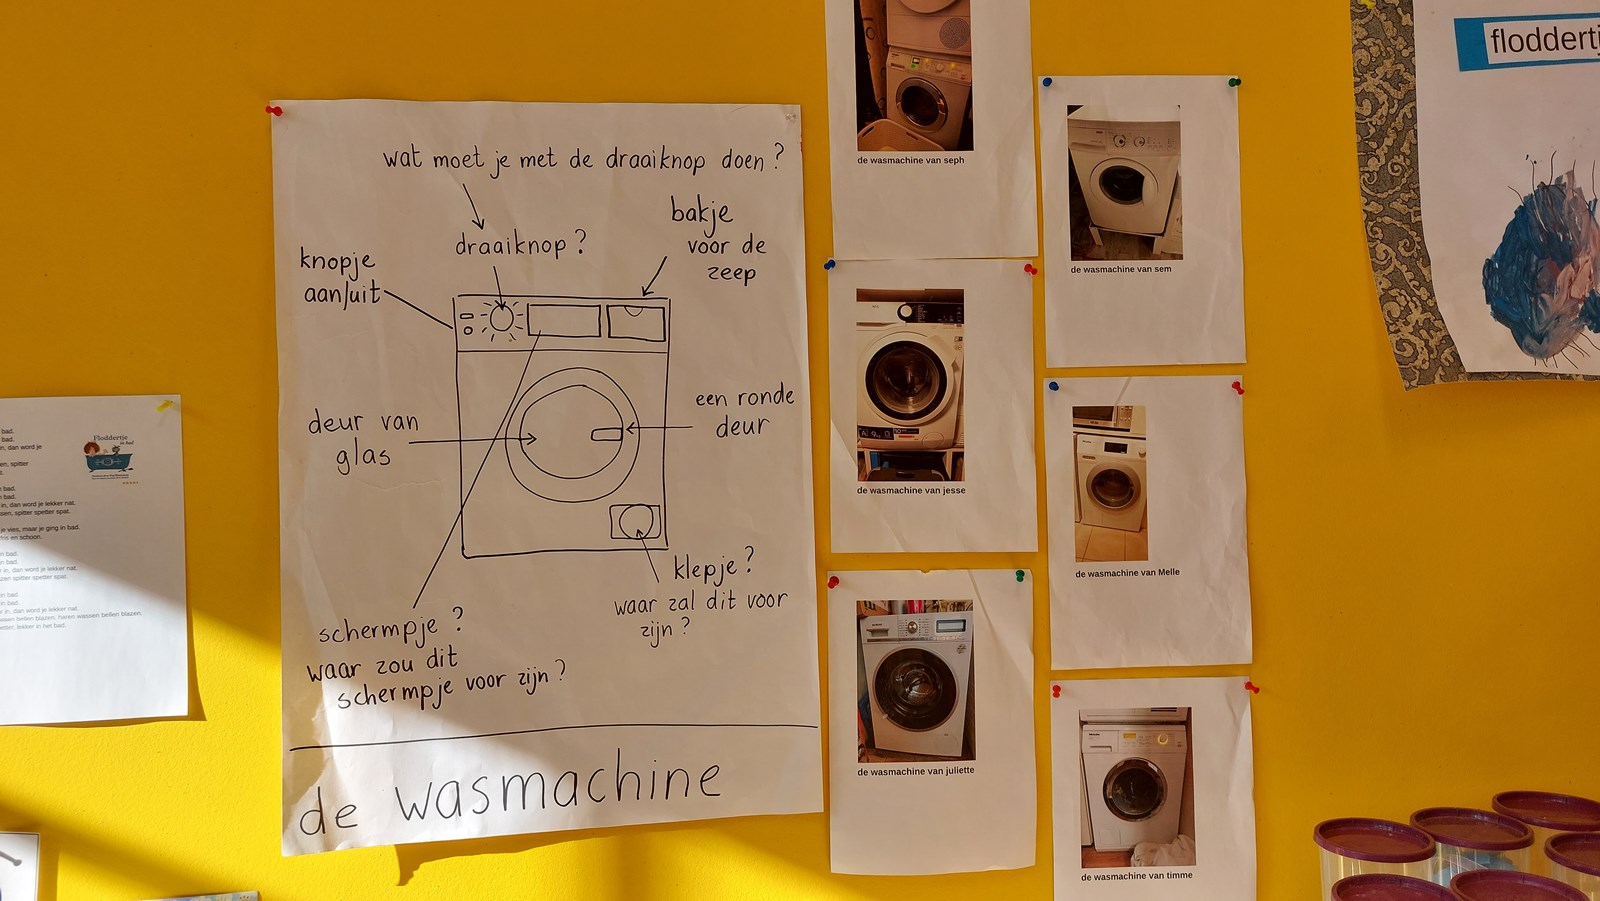 wat moet je met de draaiknop doen?
draaiknop?
bakje
voor de
zeep
knopje
aan/uit
deur van
glas
een ronde
deur
klepje?
waar zal dit voor
zijn?
schermpje?
waar zou dit
schermpje voor zijn?
de wasmachine
de wasmachine van seph
de wasmachine van sem
de wasmachine van jesse
de wasmachine van Melle
de wasmachine van juliette
de wasmachine van timme
floddertj
Floddertje
in bad
bad.
bad.
in, dan word je
spitter
bad.
bad.
in, dan word je lekker nat.
spitter spetter spat.
je vies, maar je ging in bad.
en schoon.
in bad.
in bad.
in, dan word je lekker nat.
spitter spetter spat.
in bad.
in bad.
in, dan word je lekker nat.
bellen blazen, haren wassen bellen blazen.
lekker in het bad.